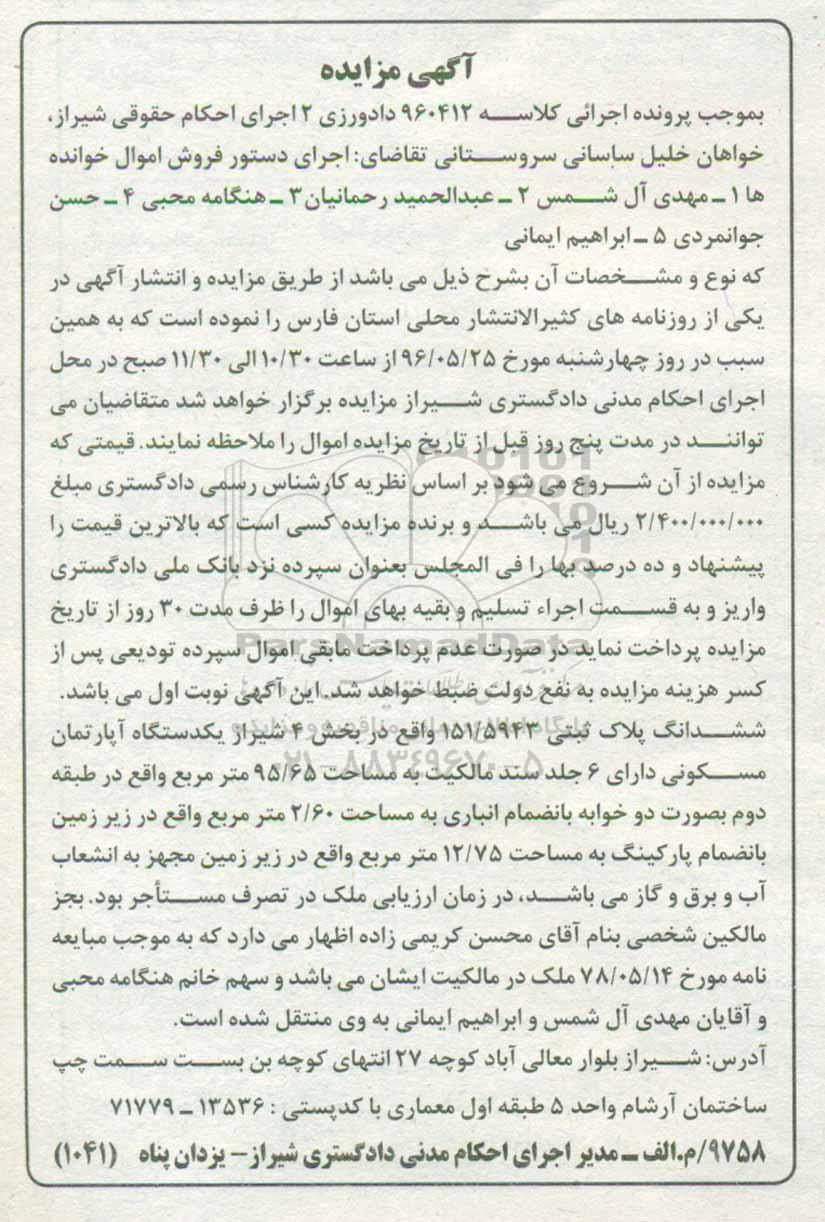 آگهی مزایده
بموجب پرونده اجرائی کلاسه ۹۶۰۴۱۲ دادورزی ۲ اجرای احکام حقوقی شیراز،
خواهان خلیل ساسانی سروستانی تقاضای: اجرای دستور فروش اموال خوانده
ها ۱ ـ مهدی آل شمس ۲ ـ عبدالحمید رحمانیان۳ ـ هنگامه محبی ۴ ـ حسن
جوانمردی ۵ ـ ابراهیم ایمانی
که نوع و مشخصات آن بشرح ذیل می باشد از طریق مزایده و انتشار آگهی در
یکی از روزنامه های کثیرالانتشار محلی استان فارس را نموده است که به همین
سبب در روز چهارشنبه مورخ ۹۶/۰۵/۲۵ از ساعت ۱۰/۳۰ الی ۱۱/۳۰ صبح در محل
اجرای احکام مدنی دادگستری شیراز مزایده برگزار خواهد شد متقاضیان می
توانند در مدت پنج روز قبل از تاریخ مزایده اموال را ملاحظه نمایند. قیمتی که
مزایده از آن شروع می شود بر اساس نظریه کارشناس رسمی دادگستری مبلغ
۲/۴۰۰/۰۰۰/۰۰۰ ریال می باشد و برنده مزایده کسی است که بالاترین قیمت را
پیشنهاد و ده درصد بها را فی المجلس بعنوان سپرده نزد بانک ملی دادگستری
واریز و به قسمت اجراء تسلیم و بقیه بهای اموال را ظرف مدت ۳۰ روز از تاریخ
مزایده پرداخت نماید در صورت عدم پرداخت مابقی اموال سپرده تودیعی پس از
کسر هزینه مزایده به نفع دولت ضبط خواهد شد. این آگهی نوبت اول می باشد.
ششدانگ پلاک ثبتی ۱۵۱/۵۹۴۳ واقع در بخش ۴ شیراز یکدستگاه آپارتمان
مسکونی دارای ۶ جلد سند مالکیت به مساحت ۹۵/۶۵ متر مربع واقع در طبقه
دوم بصورت دو خوابه بانضمام انباری به مساحت ۲/۶۰ متر مربع واقع در زیر زمین
بانضمام پارکینگ به مساحت ۱۲/۷۵ متر مربع واقع در زیر زمین مجهز به انشعاب
آب و برق و گاز می باشد، در زمان ارزیابی ملک در تصرف مستأجر بود. بجز
مالکین شخصی بنام آقای محسن کریمی زاده اظهار می دارد که به موجب مبایعه
نامه مورخ ۷۸/۰۵/۱۴ ملک در مالکیت ایشان می باشد و سهم خانم هنگامه محبی
و آقایان مهدی آل شمس و ابراهیم ایمانی به وی منتقل شده است.
آدرس: شیراز بلوار معالی آباد کوچه ۲۷ انتهای کوچه بن بست سمت چپ
ساختمان آرشام واحد ۵ طبقه اول معماری با کدپستی : ۱۳۵۳۶ ـ ۷۱۷۷۹
۹۷۵۸/م.الف ـ مدیر اجرای احکام مدنی دادگستری شیراز- یزدان پناه (۱۰۴۱)
ParsNamadData
۰۲۱-۸۸۳۴۹۶۷۰-۵